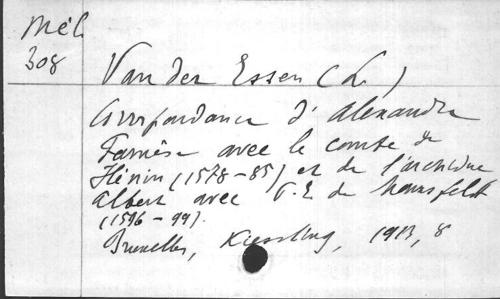 Mél
308
Van der Essen (L)
Correspondance d'Alexandre
Farnèse avec le comte de
Hénin (1578-85) et de l'archiduc
Albert avec P. E. de Mansfeldt
(1596-99).
Bruxelles, Kiessling, 1913, 8